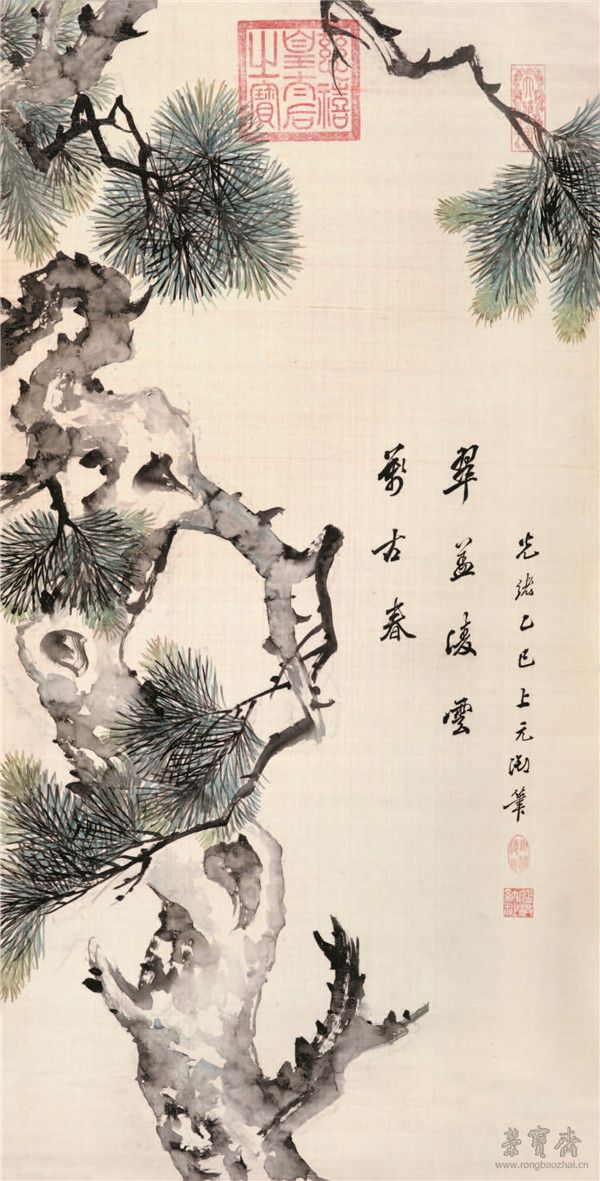 慈禧皇太后之寶
光緒乙巳上元御筆
翠盖凌雲
萬古春
榮寶齋
www.rongbaozhai.cn